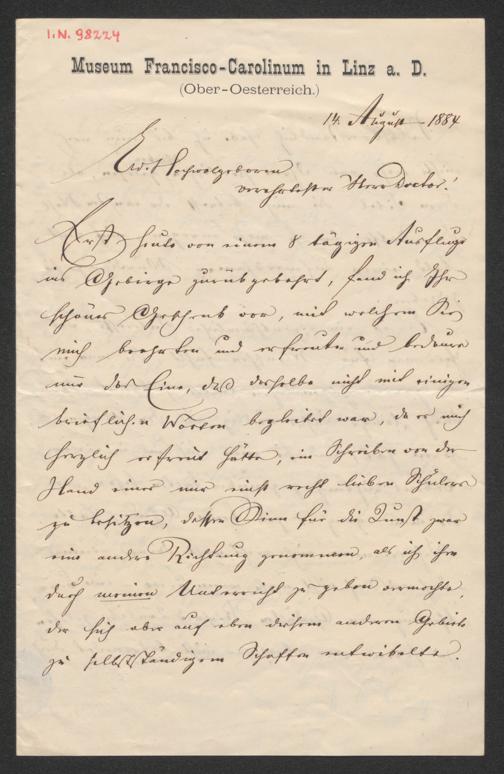 I.N. 98224
Museum Francisco-Carolinum in Linz a. D.
(Ober-Oesterreich.)
14. August 1884
Euer Hochwolgeboren
verehrtester Herr Doctor!
Erst heute von einem 8 tägigen Ausfluge
ins Gebirge zurückgekehrt, fand ich Ihr
schönes Geschenk vor, mit welchem Sie
mich beehrten und erfreuten und bedaure
nur das Eine, daß dasselbe nicht mit einigen
brieflichen Worten begleitet war, da es mich
herzlich erfreut hätte, ein Schreiben von der
Hand eines mir einst recht lieben Schülers
zu besitzen, dessen Sinn für die Kunst zwar
eine andere Richtung genommen, als ich ihm
durch meinen Unterricht zu geben vermochte,
der sich aber auf eben diesem anderen Gebiete
zu selbstständigem Schaffen entwickelte.